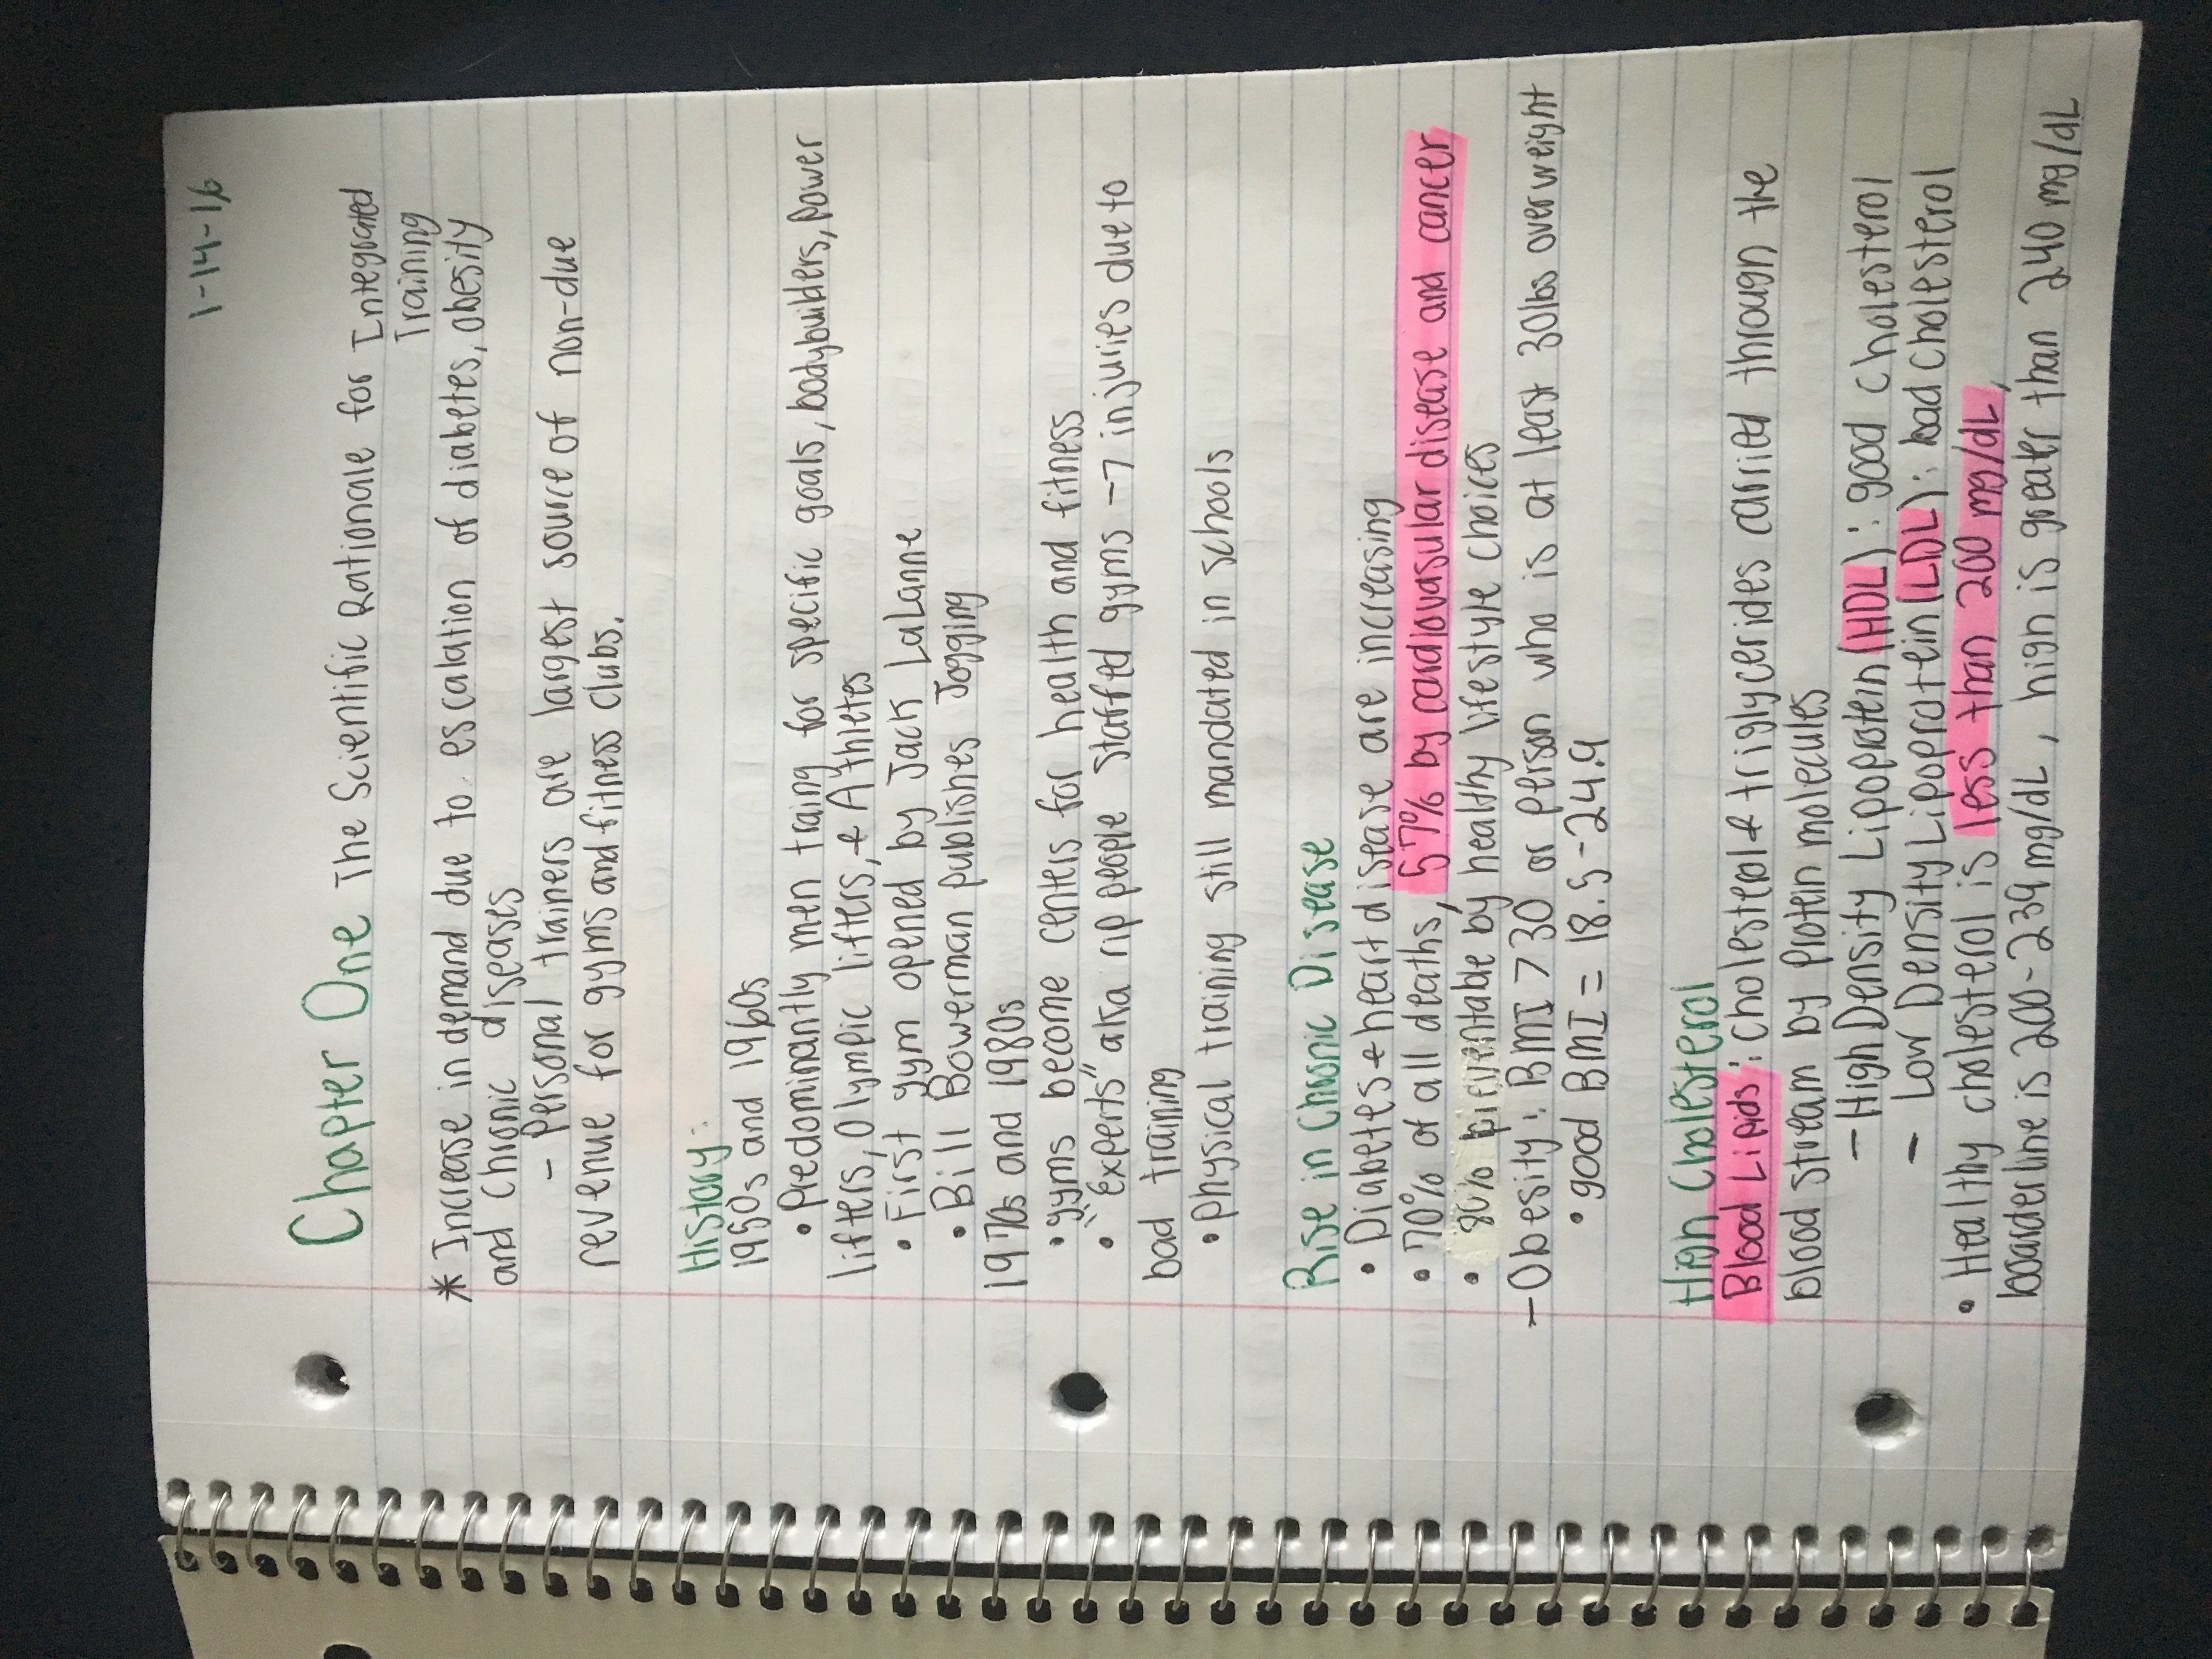 1-14-16
Chapter One The Scientific Rationale for Integrated
Training
* Increase in demand due to escalation of diabetes, obesity
and chronic diseases
- Personal trainers are largest source of non-due
revenue for gyms and fitness clubs.
History:
1950s and 1960s
• Predominantly men traing for specific goals, bodybuilders, power
lifters, Olympic lifters, & Athletes
• First gym opened by Jack LaLanne
• Bill Bowerman publishes Jogging
1970s and 1980s
• gyms become centers for health and fitness
• "Experts" aka rip people staffed gyms -> injuries due to
bad training
• physical training still mandated in schools
Rise in Chronic Disease
• Diabetes & heart disease are increasing
• 70% of all deaths, 57% by cardiovasular disease and cancer
• 80% preventable by healthy lifestyle choices
- Obesity: BMI > 30 or person who is at least 30lbs overweight
• good BMI = 18.5-24.9
High Cholesterol
Blood Lipids: cholesterol & triglycerides carried through the
blood stream by protein molecules
- High Density Lipoprotein (HDL): good cholesterol
- Low Density Lipoprotein (LDL): bad cholesterol
• Healthy cholesterol is less than 200 mg/dL,
boarderline is 200-239 mg/dL, high is greater than 240 mg/dL